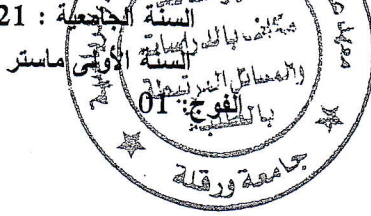 السنة الجامعية : 21
السنة الأولى ماستر
الفوج: 01
مكلف بالدراسات
والمسائل المرتبطة
بالطلبة
جامعة ورقلة